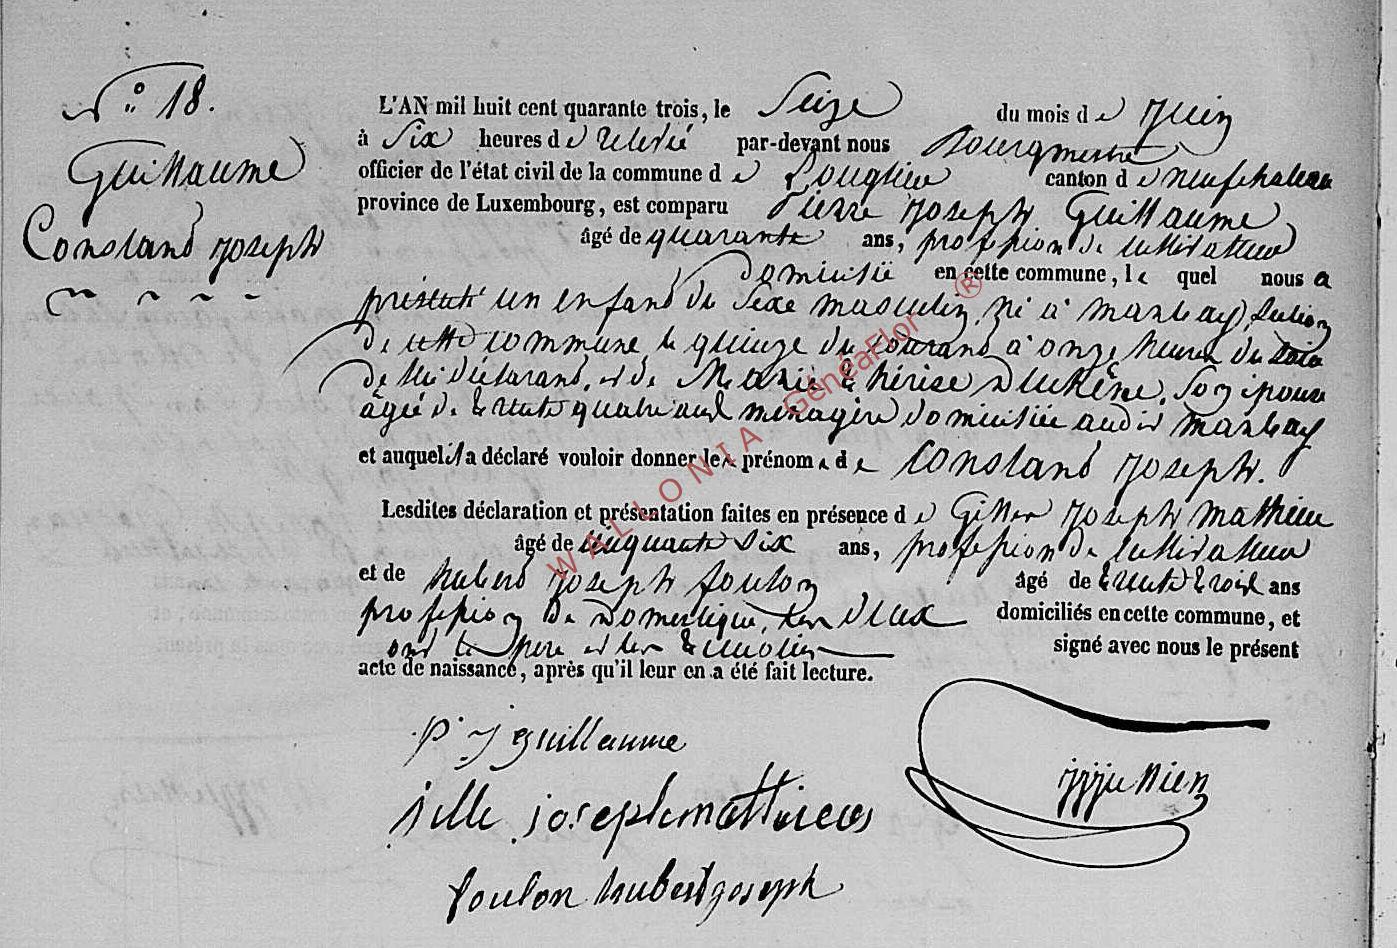 N° 18.
Guillaume
Constand Joseph
L'AN mil huit cent quarante trois, le Seize du mois de Juin
à Six heures de relevée par-devant nous Bourgmestre
officier de l'état civil de la commune de Longlier canton de neufchateau
province de Luxembourg, est comparu Pierre Joseph Guillaume
âgé de quarante ans, profession de cultivateur
domicilié en cette commune, le quel nous a
présenté un enfand du Sexe masculin, né à Manbay, Section
de cette commune, le quinze du courand à onze heures du Soir
de lui déclarand, et de Marie thérèse Duchêne, Son épouse
âgée de trente quatre ans ménagère domiciliée audit Manbay
et auquel il a déclaré vouloir donner les prénoms de Constand Joseph.
Lesdites déclaration et présentation faites en présence de Gilles Joseph Mathieu
âgé de cinquante Six ans, profession de cultivateur
et de hubert Joseph foulon âgé de trente trois ans
profession de Domestique, tous deux domiciliés en cette commune, et
ont le père et les témoins signé avec nous le présent
acte de naissance, après qu'il leur en a été fait lecture.
p j guillaume
jille joseph mathieu
foulon hubert joseph
WALLONIA GénéaFlor ®